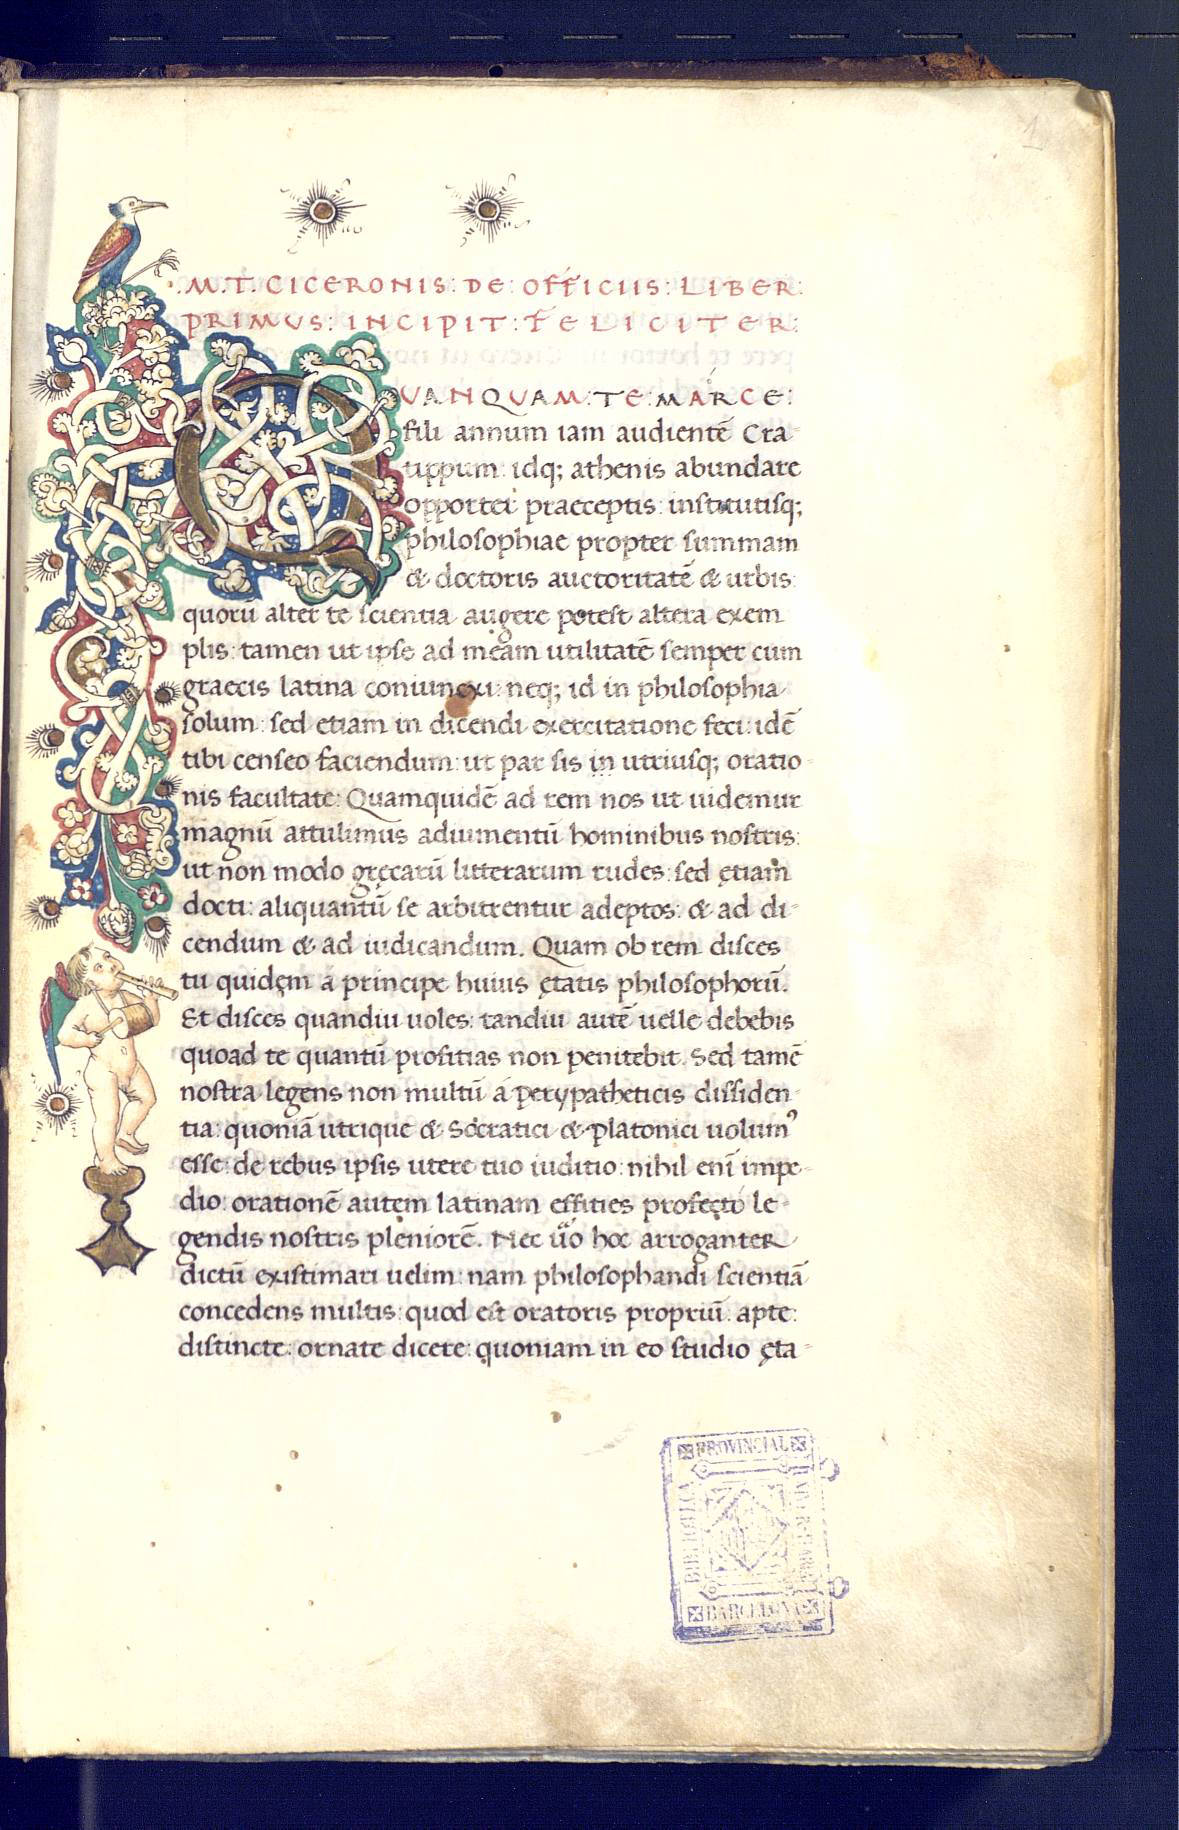 1
M.T. CICERONIS: DE: OFFICIIS: LIBER:
PRIMUS: INCIPIT: FELICITER:
QUANQUAM: TE: MARCE:
fili annum iam audientē Cra-
tippum: idq; athenis abundare
opportet praeceptis: institutisq;
philosophiae propter summam
& doctoris auctoritatē & urbis:
quorū alter te scientia augere potest altera exem
plis: tamen ut ipse ad meam utilitatē semper cum
graecis latina coniunexi: neq; id in philosophia
solum: sed etiam in dicendi exercitatione feci: idē
tibi censeo faciendum: ut par sis in utriusq; oratio-
nis facultate: Quamquidē ad rem nos ut uidemur
magnū attulimus adiumentū hominibus nostris:
ut non modo gręcarū litterarum rudes: sed ętiam
docti: aliquantū se arbitrentur adeptos: & ad di-
cendum & ad iudicandum. Quam ob rem disces
tu quidęm a principe huius ętatis philosophorū.
Et disces quandiu uoles: tandiu autē uelle debebis
quoad te quantū profitias non penitebit. Sed tamē
nostra legens non multū a perypatheticis dissiden-
tia: quoniā utrique & Socratici & platonici uolumꝰ
esse: de rebus ipsis utere tuo iuditio: nihil enī impe-
dio: orationē autęm latinam effities profęcto le-
gendis nostris pleniorē. Nec ůo hoc arroganter
dictū existimari uelim: nam philosophandi scientiā
concedens multis: quod est oratoris propriū: apte:
distincte: ornate dicere: quoniam in eo studio ęta-
PROVINCIAL
BIBLIOTECA
BARCELONA